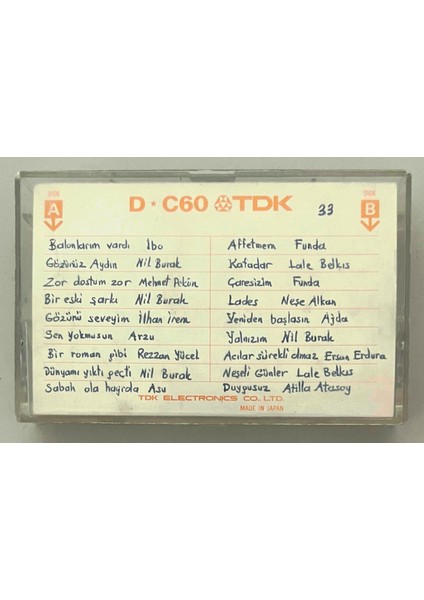 SIDE A
D ★ C60 TDK
33
SIDE B
Balonlarım vardı İbo
Gözünüz Aydın Nil Burak
Zor dostum zor Mehmet Pekün
Bir eski şarkı Nil Burak
Gözünü seveyim İlhan İrem
Sen yokmusun Arzu
Bir roman gibi Rezzan Yücel
Dünyamı yıktı geçti Nil Burak
Sabah ola hayrola Asu
Affetmem Funda
Kafadar Lale Belkıs
Çaresizim Funda
Lades Neşe Alkan
Yeniden başlasın Ajda
Yalnızım Nil Burak
Acılar sürekli olmaz Ersun Erdura
Neşeli Günler Lale Belkıs
Duygusuz Atilla Atasoy
TDK ELECTRONICS CO., LTD.
MADE IN JAPAN